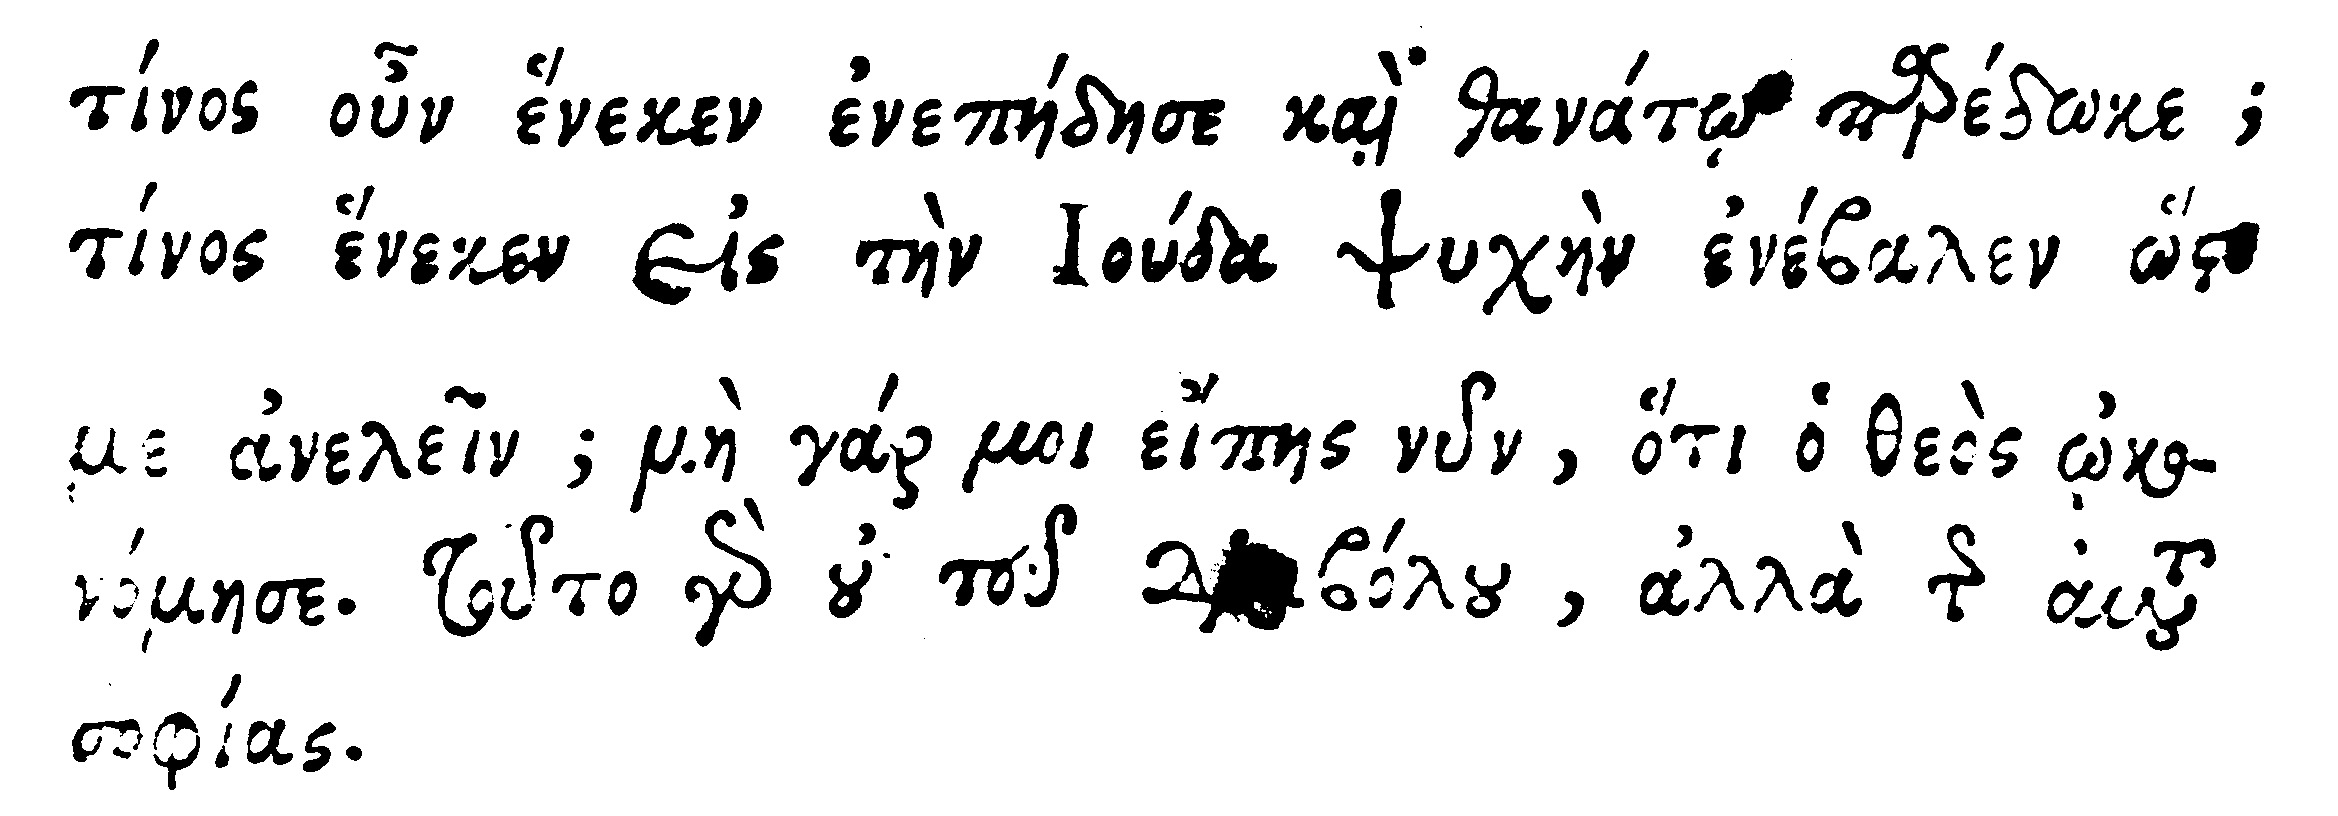 τίνος οὖν ἕνεκεν ἐνεπήδησε καὶ θανάτῳ παρέδωκε ;
τίνος ἕνεκεν εἰς τὴν Ιούδα ψυχὴν ἐνέβαλεν ὥς
με ἀνελεῖν ; μὴ γάρ μοι εἴπης νῦν , ὅτι ὁ θεὸς ᾠκο-
νόμησε. τοῦτο γὰρ οὐ τοῦ διαβόλου , ἀλλὰ τῆς αὐτοῦ
σοφίας.